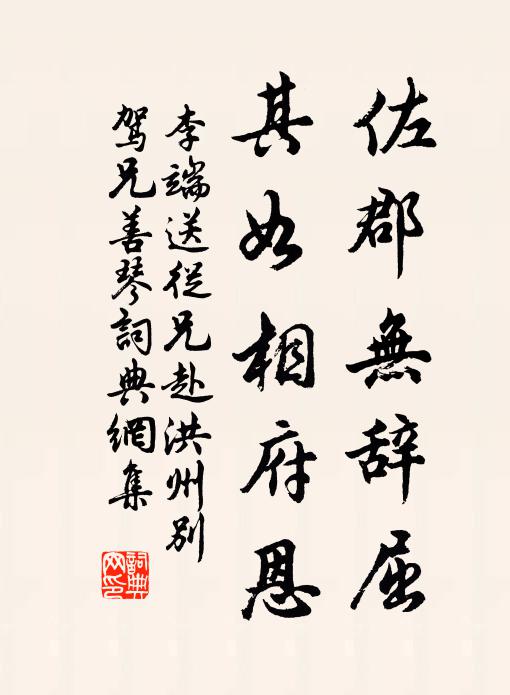 佐郡無辞屈
其如相府恩
李端送從兄赴洪州别
駕兄善琴詞典網集
詞典
网印